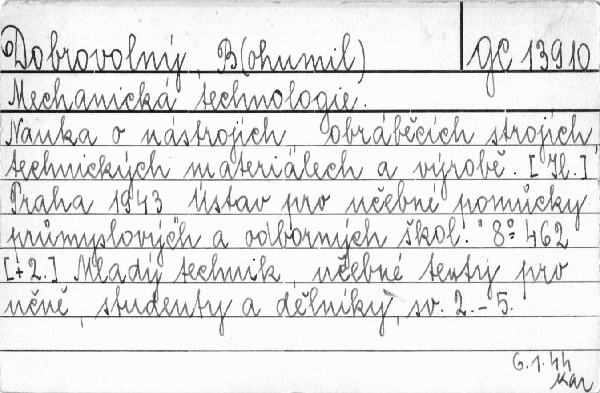 Dobrovolný, B(ohumil) GC 13910
Mechanická technologie.
Nauka o nástrojích obráběcích strojích,
technických materiálech a výrobě. [Il.]
Praha 1943 Ústav pro učebné pomůcky
průmyslových a odborných škol. 8° 462
[+2.] Mladý technik, učebné texty pro
učně, studenty a dělníky, sv. 2.-5.
6.1.44
Kar